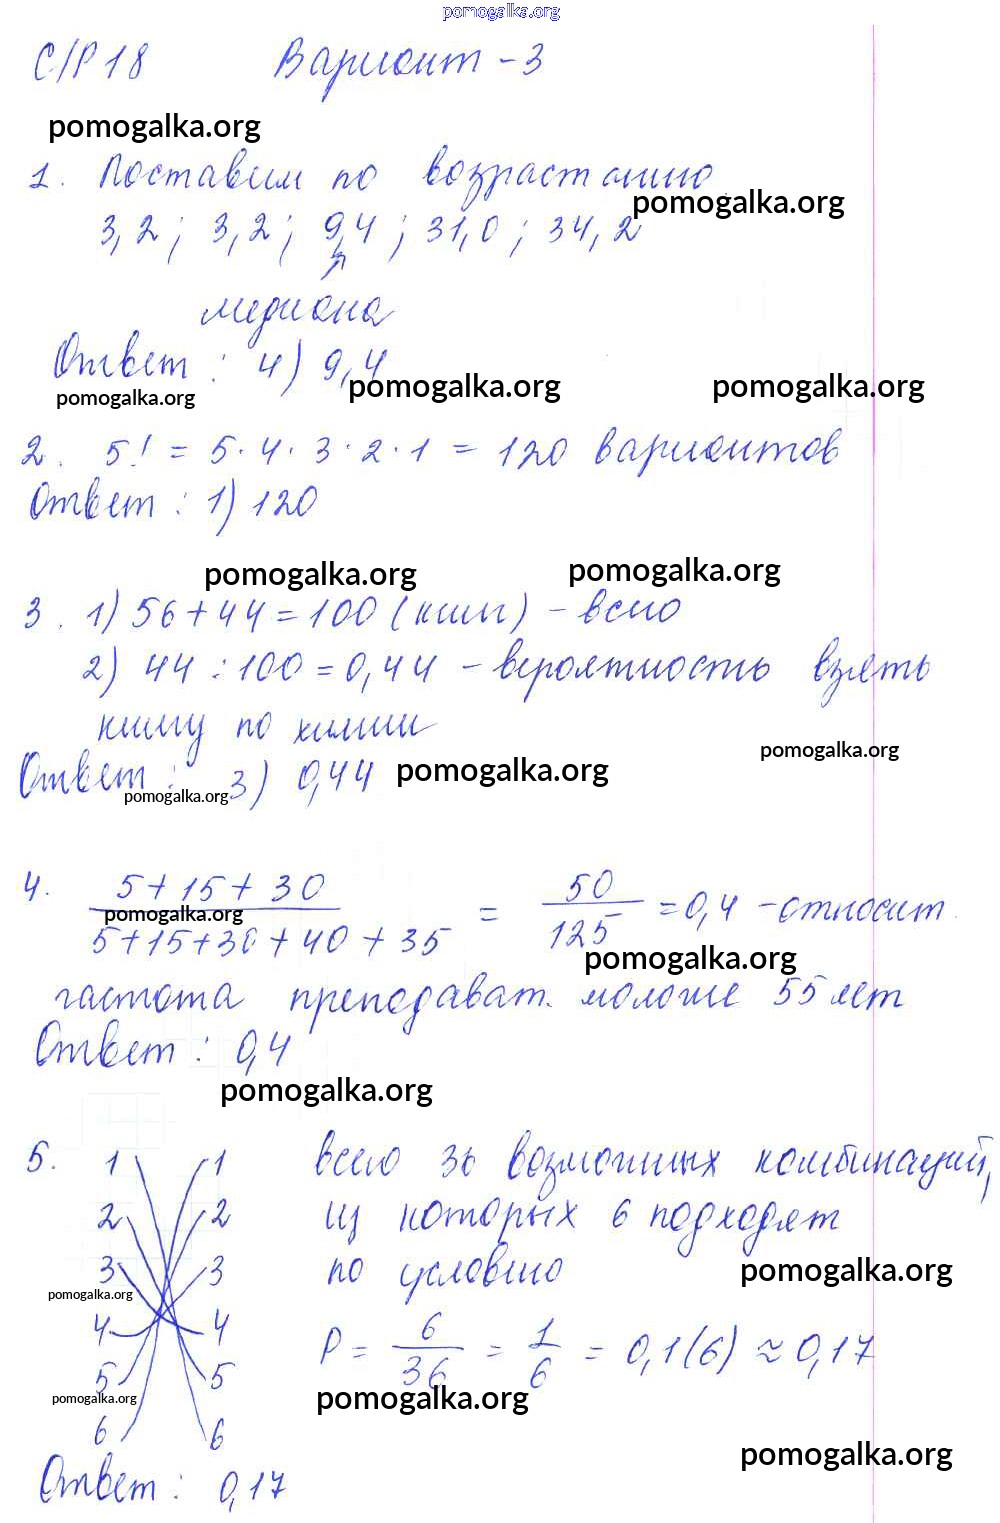 pomogalka.org
С/Р 18 Вариант - 3
pomogalka.org
1. Поставим по возрастанию
pomogalka.org
3,2 ; 3,2 ; 9,4 ; 31,0 ; 34,2
медиана
Ответ : 4) 9,4
pomogalka.org pomogalka.org pomogalka.org
2. 5! = 5 · 4 · 3 · 2 · 1 = 120 вариантов
Ответ : 1) 120
pomogalka.org pomogalka.org
3. 1) 56 + 44 = 100 (книг) - всего
2) 44 : 100 = 0,44 - вероятность взять
книгу по химии
pomogalka.org
Ответ : 3) 0,44 pomogalka.org
pomogalka.org
4. 5 + 15 + 30 / 5 + 15 + 30 + 40 + 35 = 50 / 125 = 0,4 - относит.
pomogalka.org
pomogalka.org
частота преподават. моложе 55 лет
Ответ : 0,4
pomogalka.org
5. 1 1 всего 36 возможных комбинаций,
2 2 из которых 6 подходят
3 3 по условию
pomogalka.org
pomogalka.org
4 4 P = 6 / 36 = 1 / 6 = 0,1(6) ≈ 0,17
5 5
pomogalka.org pomogalka.org
6 6
pomogalka.org
Ответ : 0,17